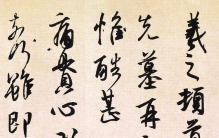 羲之頓首
先墓再
惟酷甚
痛貫心肝
奈何雖即